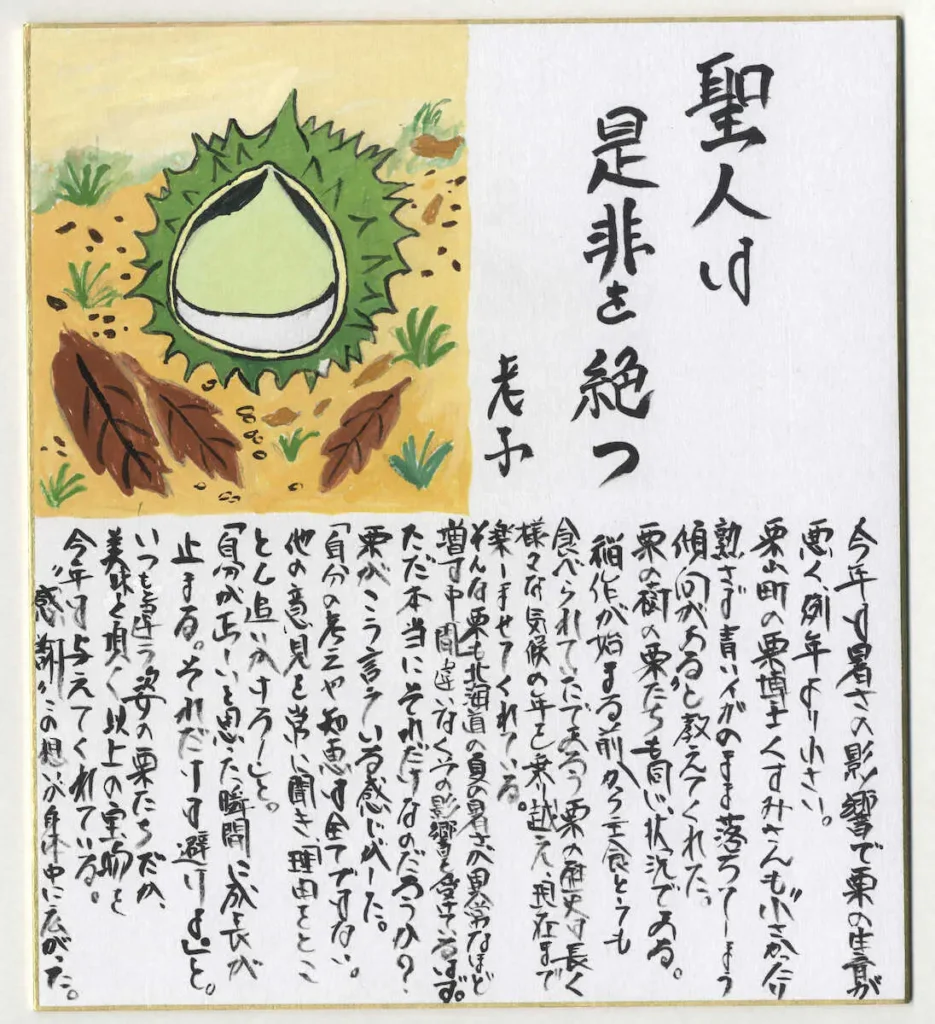 聖人は
是非を絶つ
老子
今年は暑さの影響で栗の生育が
悪く例年より小さい。
栗山町の栗博士くすみさんも"小さかったり
熟さず青いイガのまま落ちてしまう
傾向がある"と教えてくれた。
栗の樹の栗たちも同じ状況である。
稲作が始まる前から主食としても
食べられていたであろう栗の歴史は長く
様々な気候の年を乗り越え、現在まで
楽しませてくれている。
そんな栗も北海道の夏の暑さが異常なほど
増す中間違いなくその影響を受けているはず。
ただ本当にそれだけなのだろうか?
栗がこう言っている感じがした。
「自分の考えや知恵は全てではない。
他の意見を常に聞き、理由をとこ
とん追いかけろ」と。
「自分が正しいと思った瞬間に成長が
止まる。それだけは避けよ」と。
いつもと違う姿の栗たちだが、
美味と頂く以上の実物を
今年は与えてくれている。
"感謝"この想いが身体中に広がった。